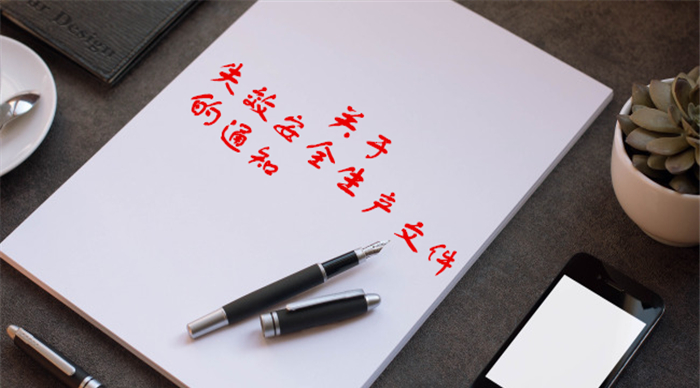 ur Design
关于
失效安全生产文件
的通知